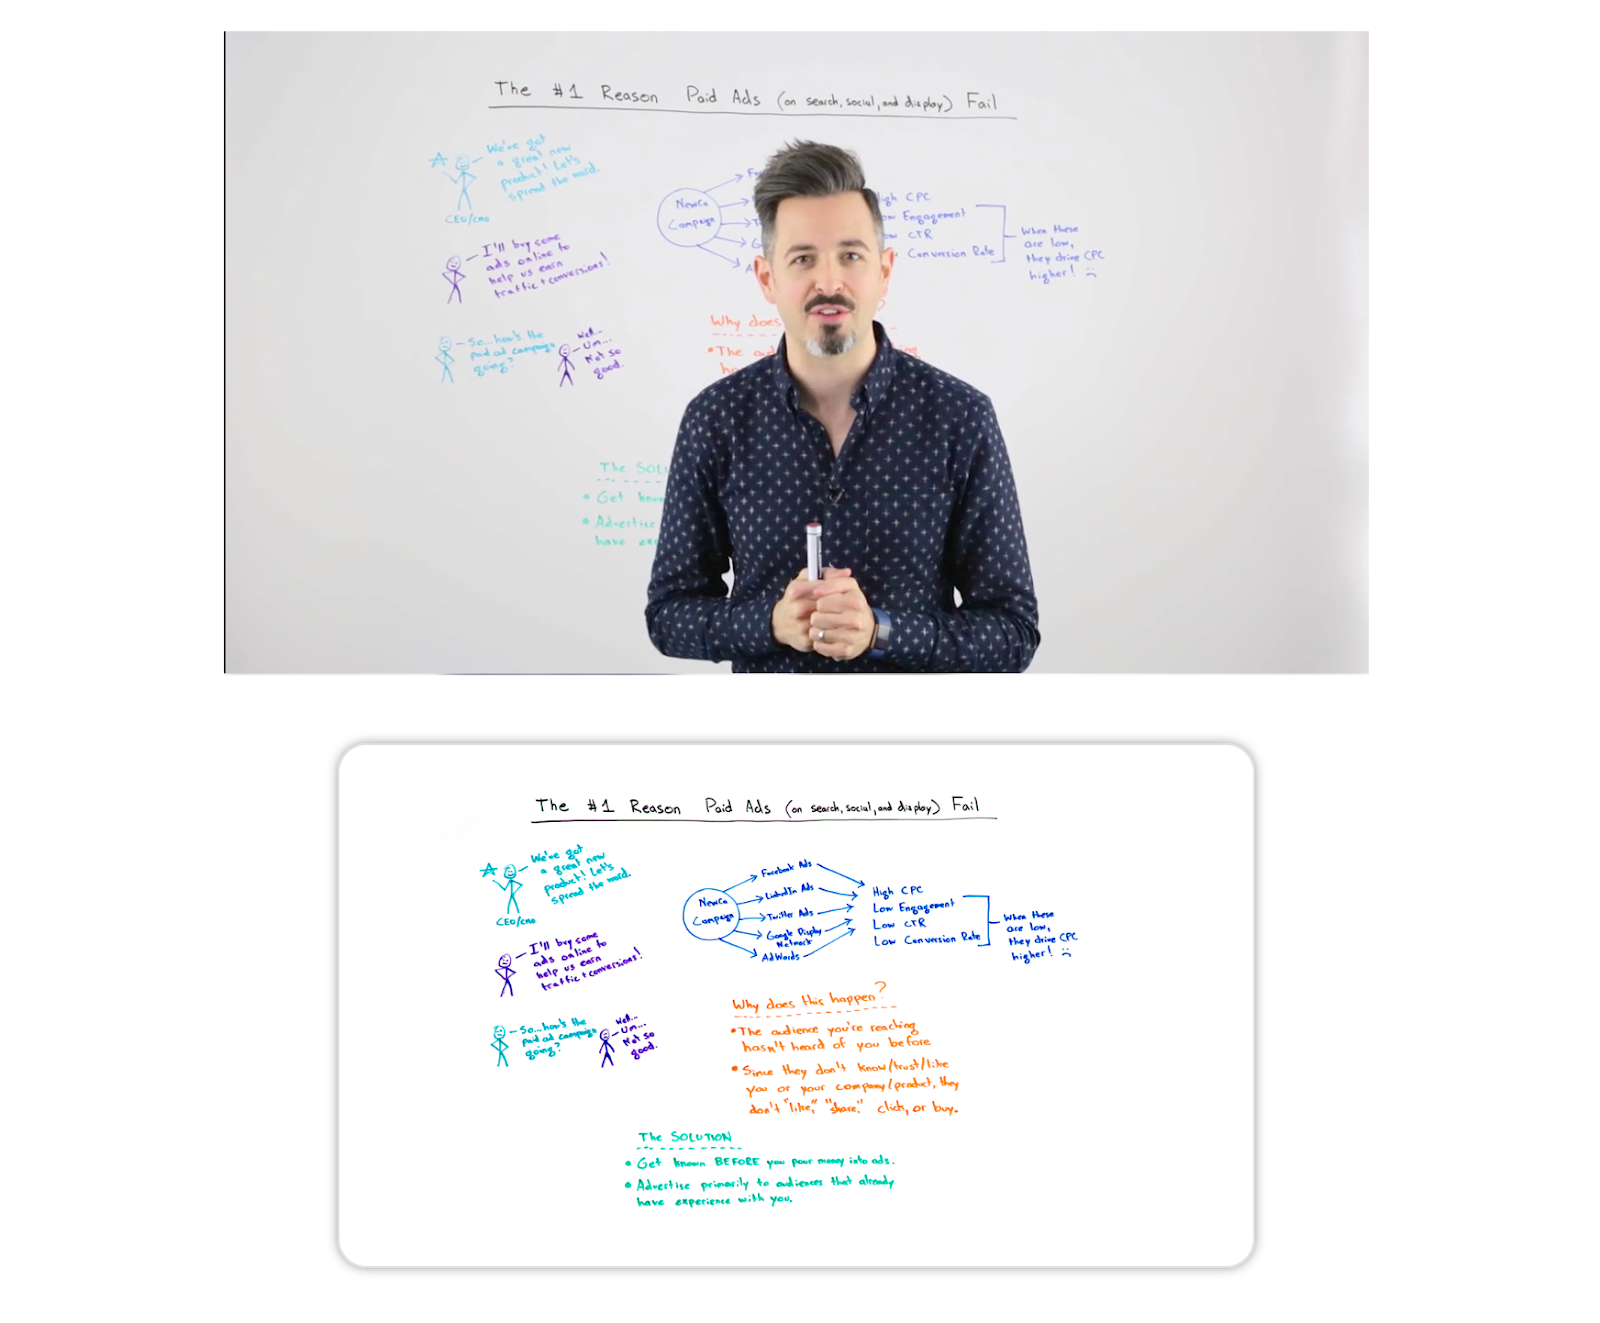 The #1 Reason Paid Ads (on search, social, and display) Fail
We've got
a great new
product! Let's
spread the word.
CEO/CMO
I'll buy some
ads online to
help us earn
traffic + conversions!
So...how's the
paid ad campaign
going?
Well...
Um...
Not so
good.
NewCo
Campaign
High CPC
Low Engagement
Low CTR
Conversion Rate
When these
are low,
they drive CPC
higher! :(
Why does
?
•The
The SOLU
• Get know
• Advertise
have exp
The #1 Reason Paid Ads (on search, social, and display) Fail
We've got
a great new
product! Let's
spread the word.
CEO/CMO
I'll buy some
ads online to
help us earn
traffic + conversions!
So...how's the
paid ad campaign
going?
Well...
Um...
Not so
good.
NewCo
Campaign
Facebook Ads
LinkedIn Ads
Twitter Ads
Google Display
Network
AdWords
High CPC
Low Engagement
Low CTR
Low Conversion Rate
When these
are low,
they drive CPC
higher! :(
Why does this happen?
•The audience you're reaching
hasn't heard of you before
• Since they don't know/trust/like
you or your company/product, they
don't "like," "share," click, or buy.
The SOLUTION
• Get known BEFORE you pour money into ads.
• Advertise primarily to audiences that already
have experience with you.